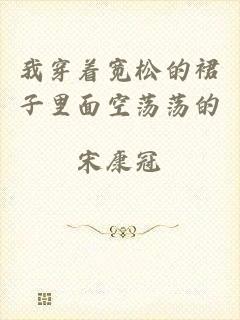 我穿着宽松的裙
子里面空荡荡的
宋康冠